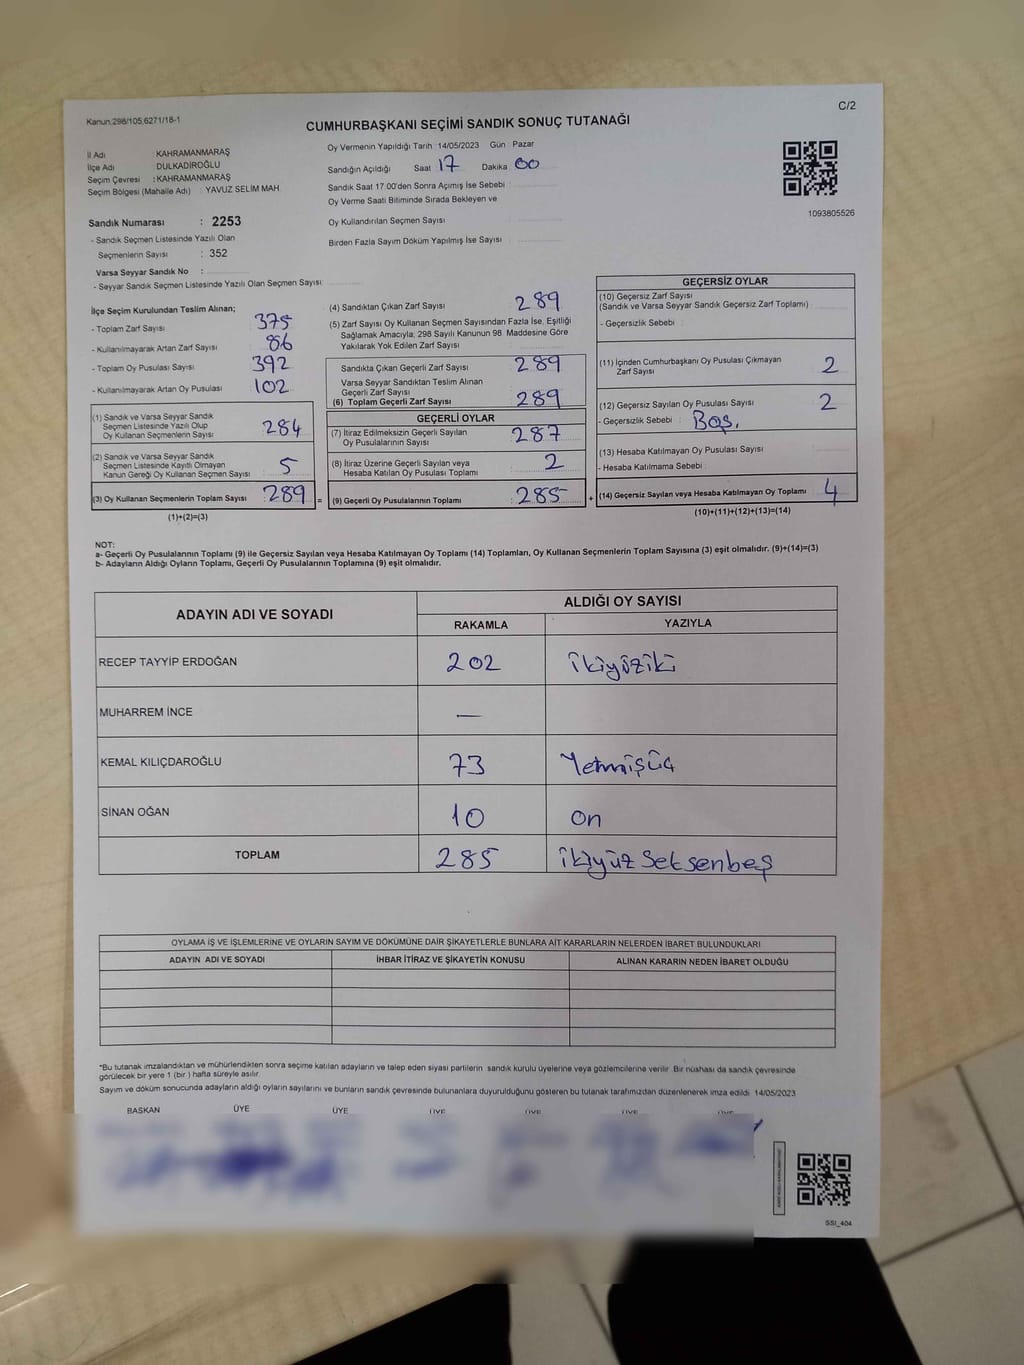 Kanun:298/105,6271/18-1
C/2
CUMHURBAŞKANI SEÇİMİ SANDIK SONUÇ TUTANAĞI
İl Adı KAHRAMANMARAŞ
İlçe Adı DULKADİROĞLU
Seçim Çevresi : KAHRAMANMARAŞ
Seçim Bölgesi (Mahalle Adı) : YAVUZ SELİM MAH.
Sandık Numarası : 2253
- Sandık Seçmen Listesinde Yazılı Olan
Seçmenlerin Sayısı : 352
Varsa Seyyar Sandık No :
- Seyyar Sandık Seçmen Listesinde Yazılı Olan Seçmen Sayısı:
Oy Vermenin Yapıldığı Tarih 14/05/2023 Gün Pazar
Sandığın Açıldığı Saat 17 Dakika 00
Sandık Saat 17.00'den Sonra Açımış İse Sebebi :
Oy Verme Saati Bitiminde Sırada Bekleyen ve
Oy Kullandırılan Seçmen Sayısı :
Birden Fazla Sayım Döküm Yapılmış İse Sayısı :
1093805526
İlçe Seçim Kurulundan Teslim Alınan;
- Toplam Zarf Sayısı 375
- Kullanılmayarak Artan Zarf Sayısı 86
- Toplam Oy Pusulası Sayısı 392
- Kullanılmayarak Artan Oy Pusulası 102
(1) Sandık ve Varsa Seyyar Sandık
Seçmen Listesinde Yazılı Olup
Oy Kullanan Seçmenlerin Sayısı 284
(2) Sandık ve Varsa Seyyar Sandık
Seçmen Listesinde Kayıtlı Olmayan
Kanun Gereği Oy Kullanan Seçmen Sayısı 5
(3) Oy Kullanan Seçmenlerin Toplam Sayısı 289 =
(1)+(2)=(3)
(4) Sandıktan Çıkan Zarf Sayısı 289
(5) Zarf Sayısı Oy Kullanan Seçmen Sayısından Fazla İse, Eşitliği
Sağlamak Amacıyla; 298 Sayılı Kanunun 98. Maddesine Göre
Yakılarak Yok Edilen Zarf Sayısı
Sandıkta Çıkan Geçerli Zarf Sayısı 289
Varsa Seyyar Sandıktan Teslim Alınan
Geçerli Zarf Sayısı
(6) Toplam Geçerli Zarf Sayısı 289
GEÇERLİ OYLAR
(7) İtiraz Edilmeksizin Geçerli Sayılan
Oy Pusulalarının Sayısı 287
(8) İtiraz Üzerine Geçerli Sayılan veya
Hesaba Katılan Oy Pusulası Toplamı 2
(9) Geçerli Oy Pusulalarının Toplamı : 285 +
GEÇERSİZ OYLAR
(10) Geçersiz Zarf Sayısı
(Sandık ve Varsa Seyyar Sandık Geçersiz Zarf Toplamı)
- Geçersizlik Sebebi :
(11) İçinden Cumhurbaşkanı Oy Pusulası Çıkmayan
Zarf Sayısı 2
(12) Geçersiz Sayılan Oy Pusulası Sayısı 2
- Geçersizlik Sebebi : Boş.
(13) Hesaba Katılmayan Oy Pusulası Sayısı
- Hesaba Katılmama Sebebi :
(14) Geçersiz Sayılan veya Hesaba Katılmayan Oy Toplamı 4
(10)+(11)+(12)+(13)=(14)
NOT:
a- Geçerli Oy Pusulalarının Toplamı (9) ile Geçersiz Sayılan veya Hesaba Katılmayan Oy Toplamı (14) Toplamları, Oy Kullanan Seçmenlerin Toplam Sayısına (3) eşit olmalıdır. (9)+(14)=(3)
b- Adayların Aldığı Oyların Toplamı, Geçerli Oy Pusulalarının Toplamına (9) eşit olmalıdır.
ADAYIN ADI VE SOYADI
ALDIĞI OY SAYISI
RAKAMLA YAZIYLA
RECEP TAYYİP ERDOĞAN 202 ikiyüziki
MUHARREM İNCE —
KEMAL KILIÇDAROĞLU 73 Yetmişüç
SİNAN OĞAN 10 on
TOPLAM 285 ikiyüz seksenbeş
OYLAMA İŞ VE İŞLEMLERİNE VE OYLARIN SAYIM VE DÖKÜMÜNE DAİR ŞİKAYETLERLE BUNLARA AİT KARARLARIN NELERDEN İBARET BULUNDUKLARI
ADAYIN ADI VE SOYADI İHBAR İTİRAZ VE ŞİKAYETİN KONUSU ALINAN KARARIN NEDEN İBARET OLDUĞU
*Bu tutanak imzalandıktan ve mühürlendikten sonra seçime katılan adayların ve talep eden siyasi partilerin sandık kurulu üyelerine veya gözlemcilerine verilir. Bir nüshası da sandık çevresinde
görülecek bir yere 1 (bir ) hafta süreyle asılır.
Sayım ve döküm sonucunda adayların aldığı oyların sayılarını ve bunların sandık çevresinde bulunanlara duyurulduğunu gösteren bu tutanak tarafımızdan düzenlenerek imza edildi. 14/05/2023
BAŞKAN ÜYE ÜYE ÜYE ÜYE ÜYE ÜYE
SSI_404